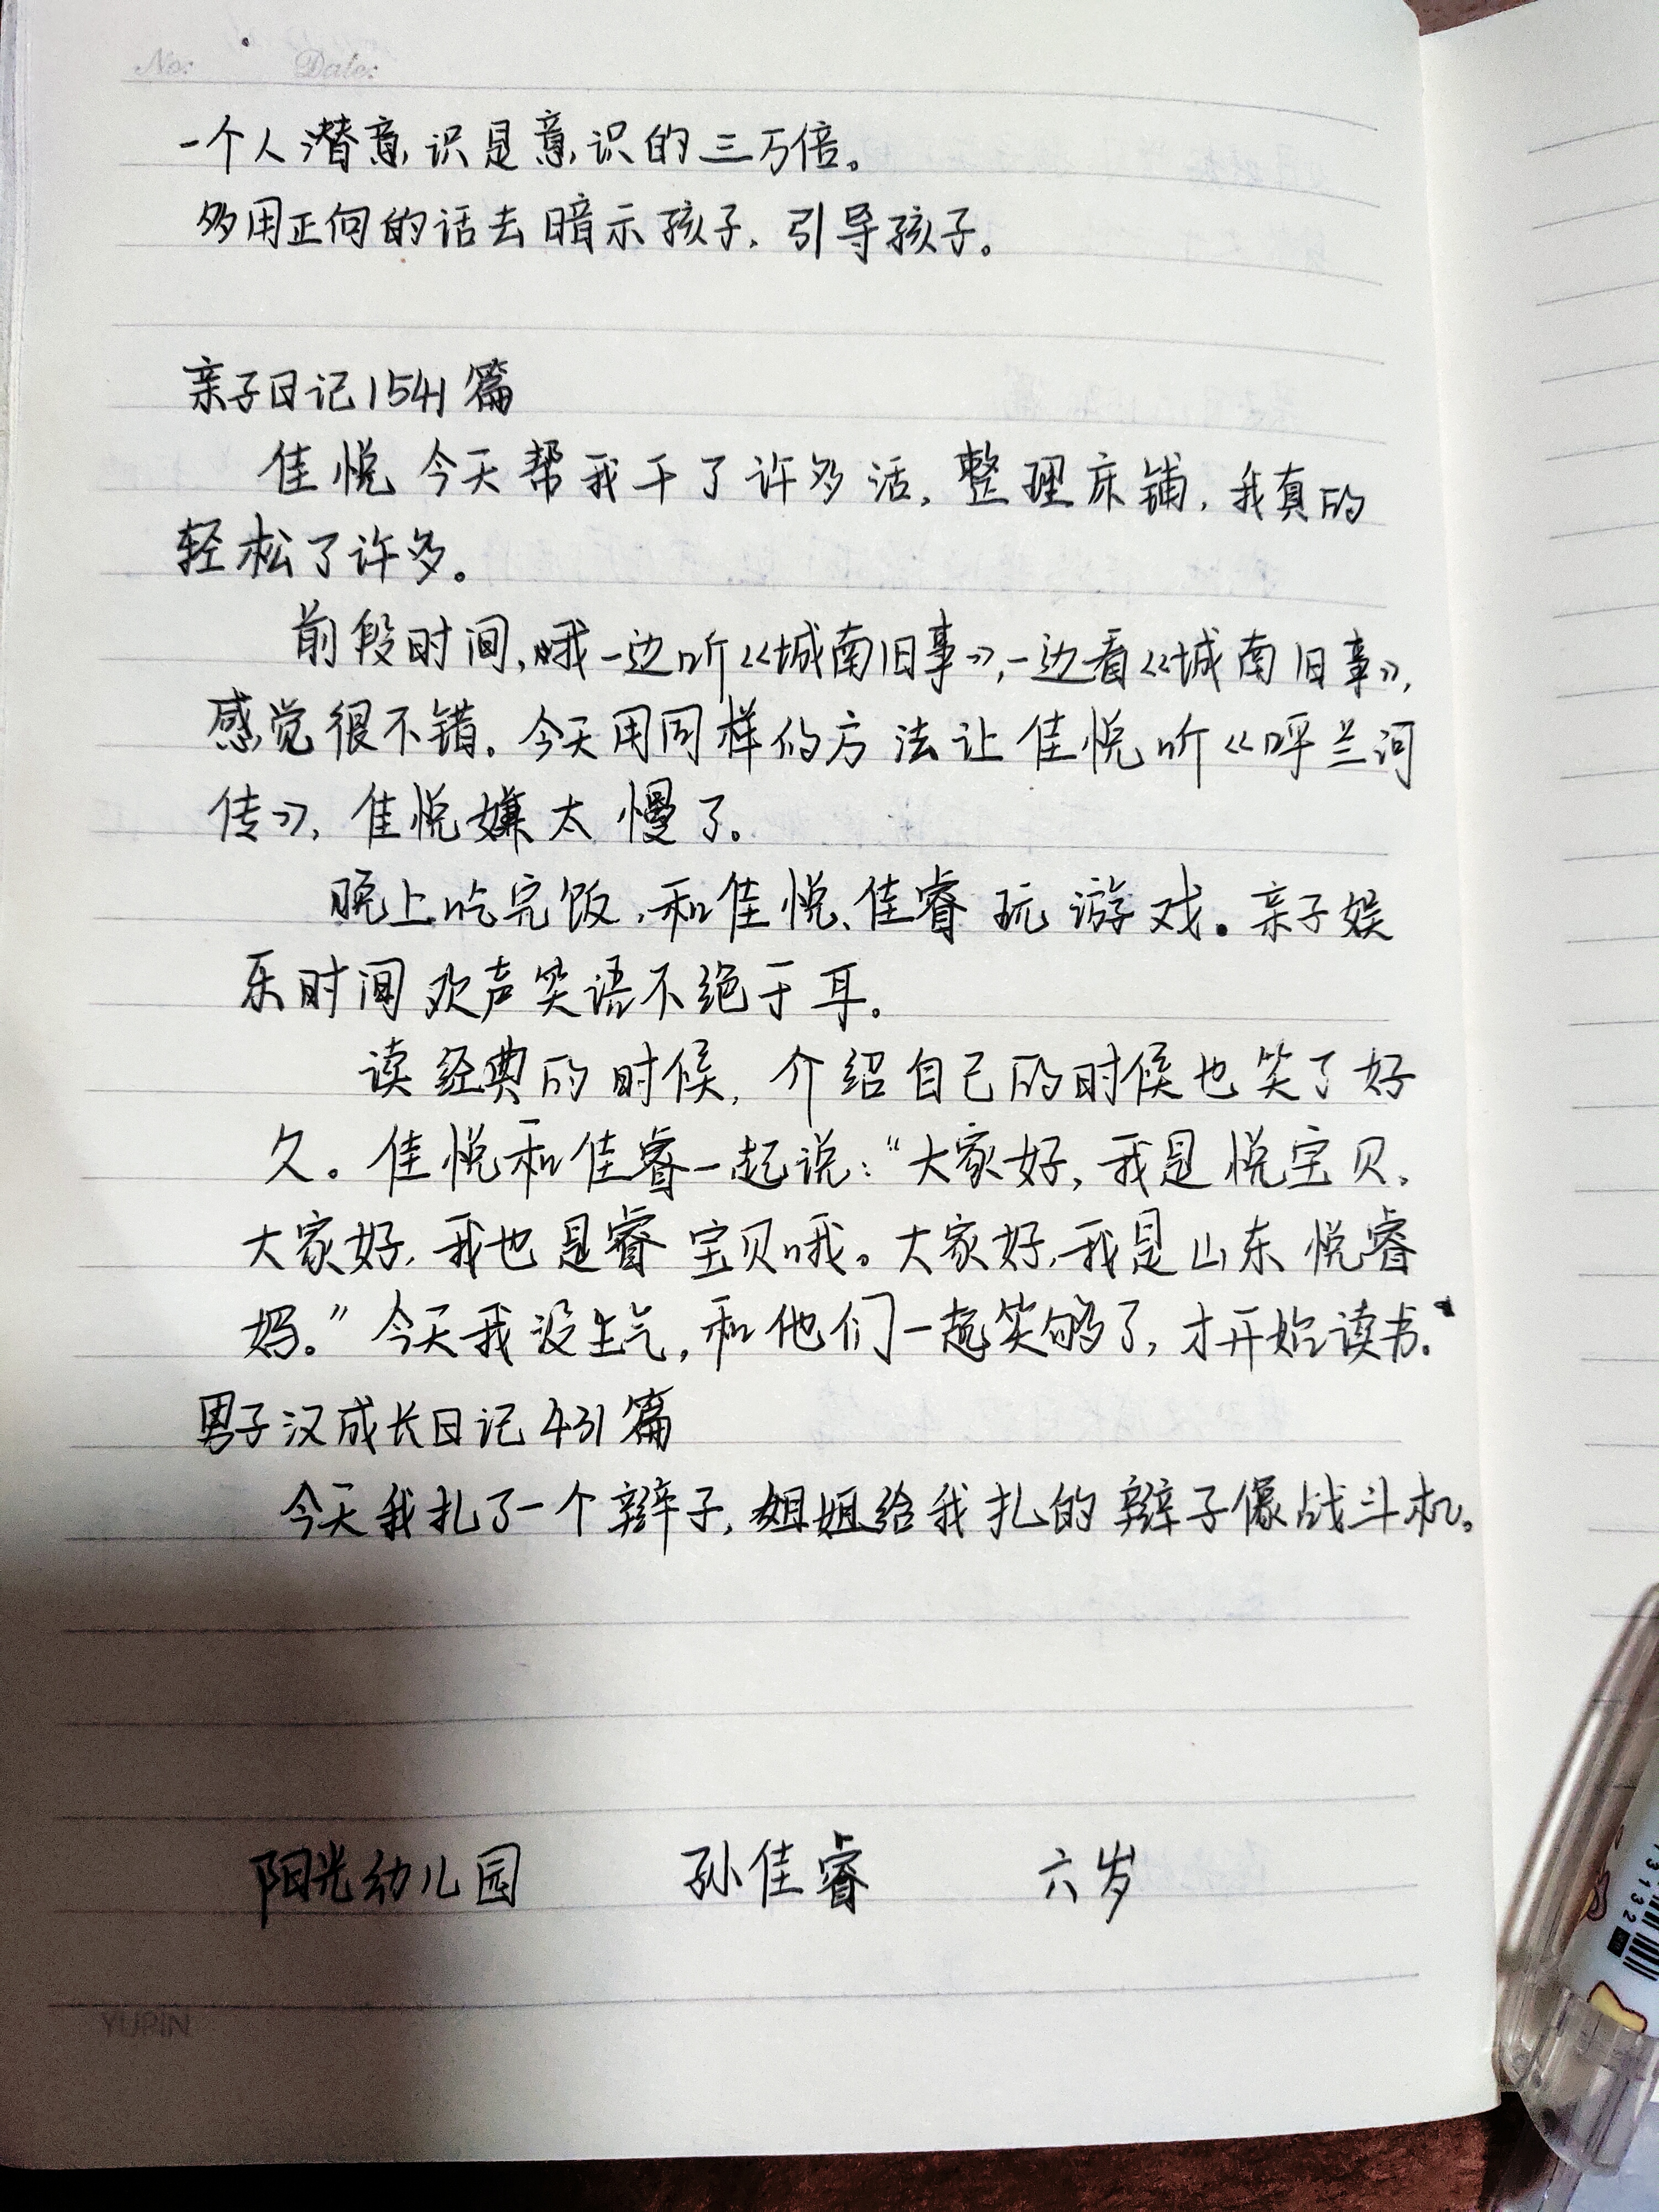 No: Date:
一个人潜意识是意识的三万倍。
多用正向的话去暗示孩子，引导孩子。
亲子日记1541篇
佳悦今天帮我干了许多活，整理床铺，我真的
轻松了许多。
前段时间，哦一边听《城南旧事》，一边看《城南旧事》，
感觉很不错。今天用同样的方法让佳悦听《呼兰河
传》，佳悦嫌太慢了。
晚上吃完饭，和佳悦、佳睿玩游戏。亲子娱
乐时间欢声笑语不绝于耳。
读经典的时候，介绍自己的时候也笑了好
久。佳悦和佳睿一起说：“大家好，我是悦宝贝。
大家好，我也是睿宝贝哦。大家好，我是山东悦睿
妈。”今天我没生气，和他们一起笑够了，才开始读书。
男子汉成长日记431篇
今天我扎了一个辫子，姐姐给我扎的辫子像战斗机。
阳光幼儿园 孙佳睿 六岁
YUPIN